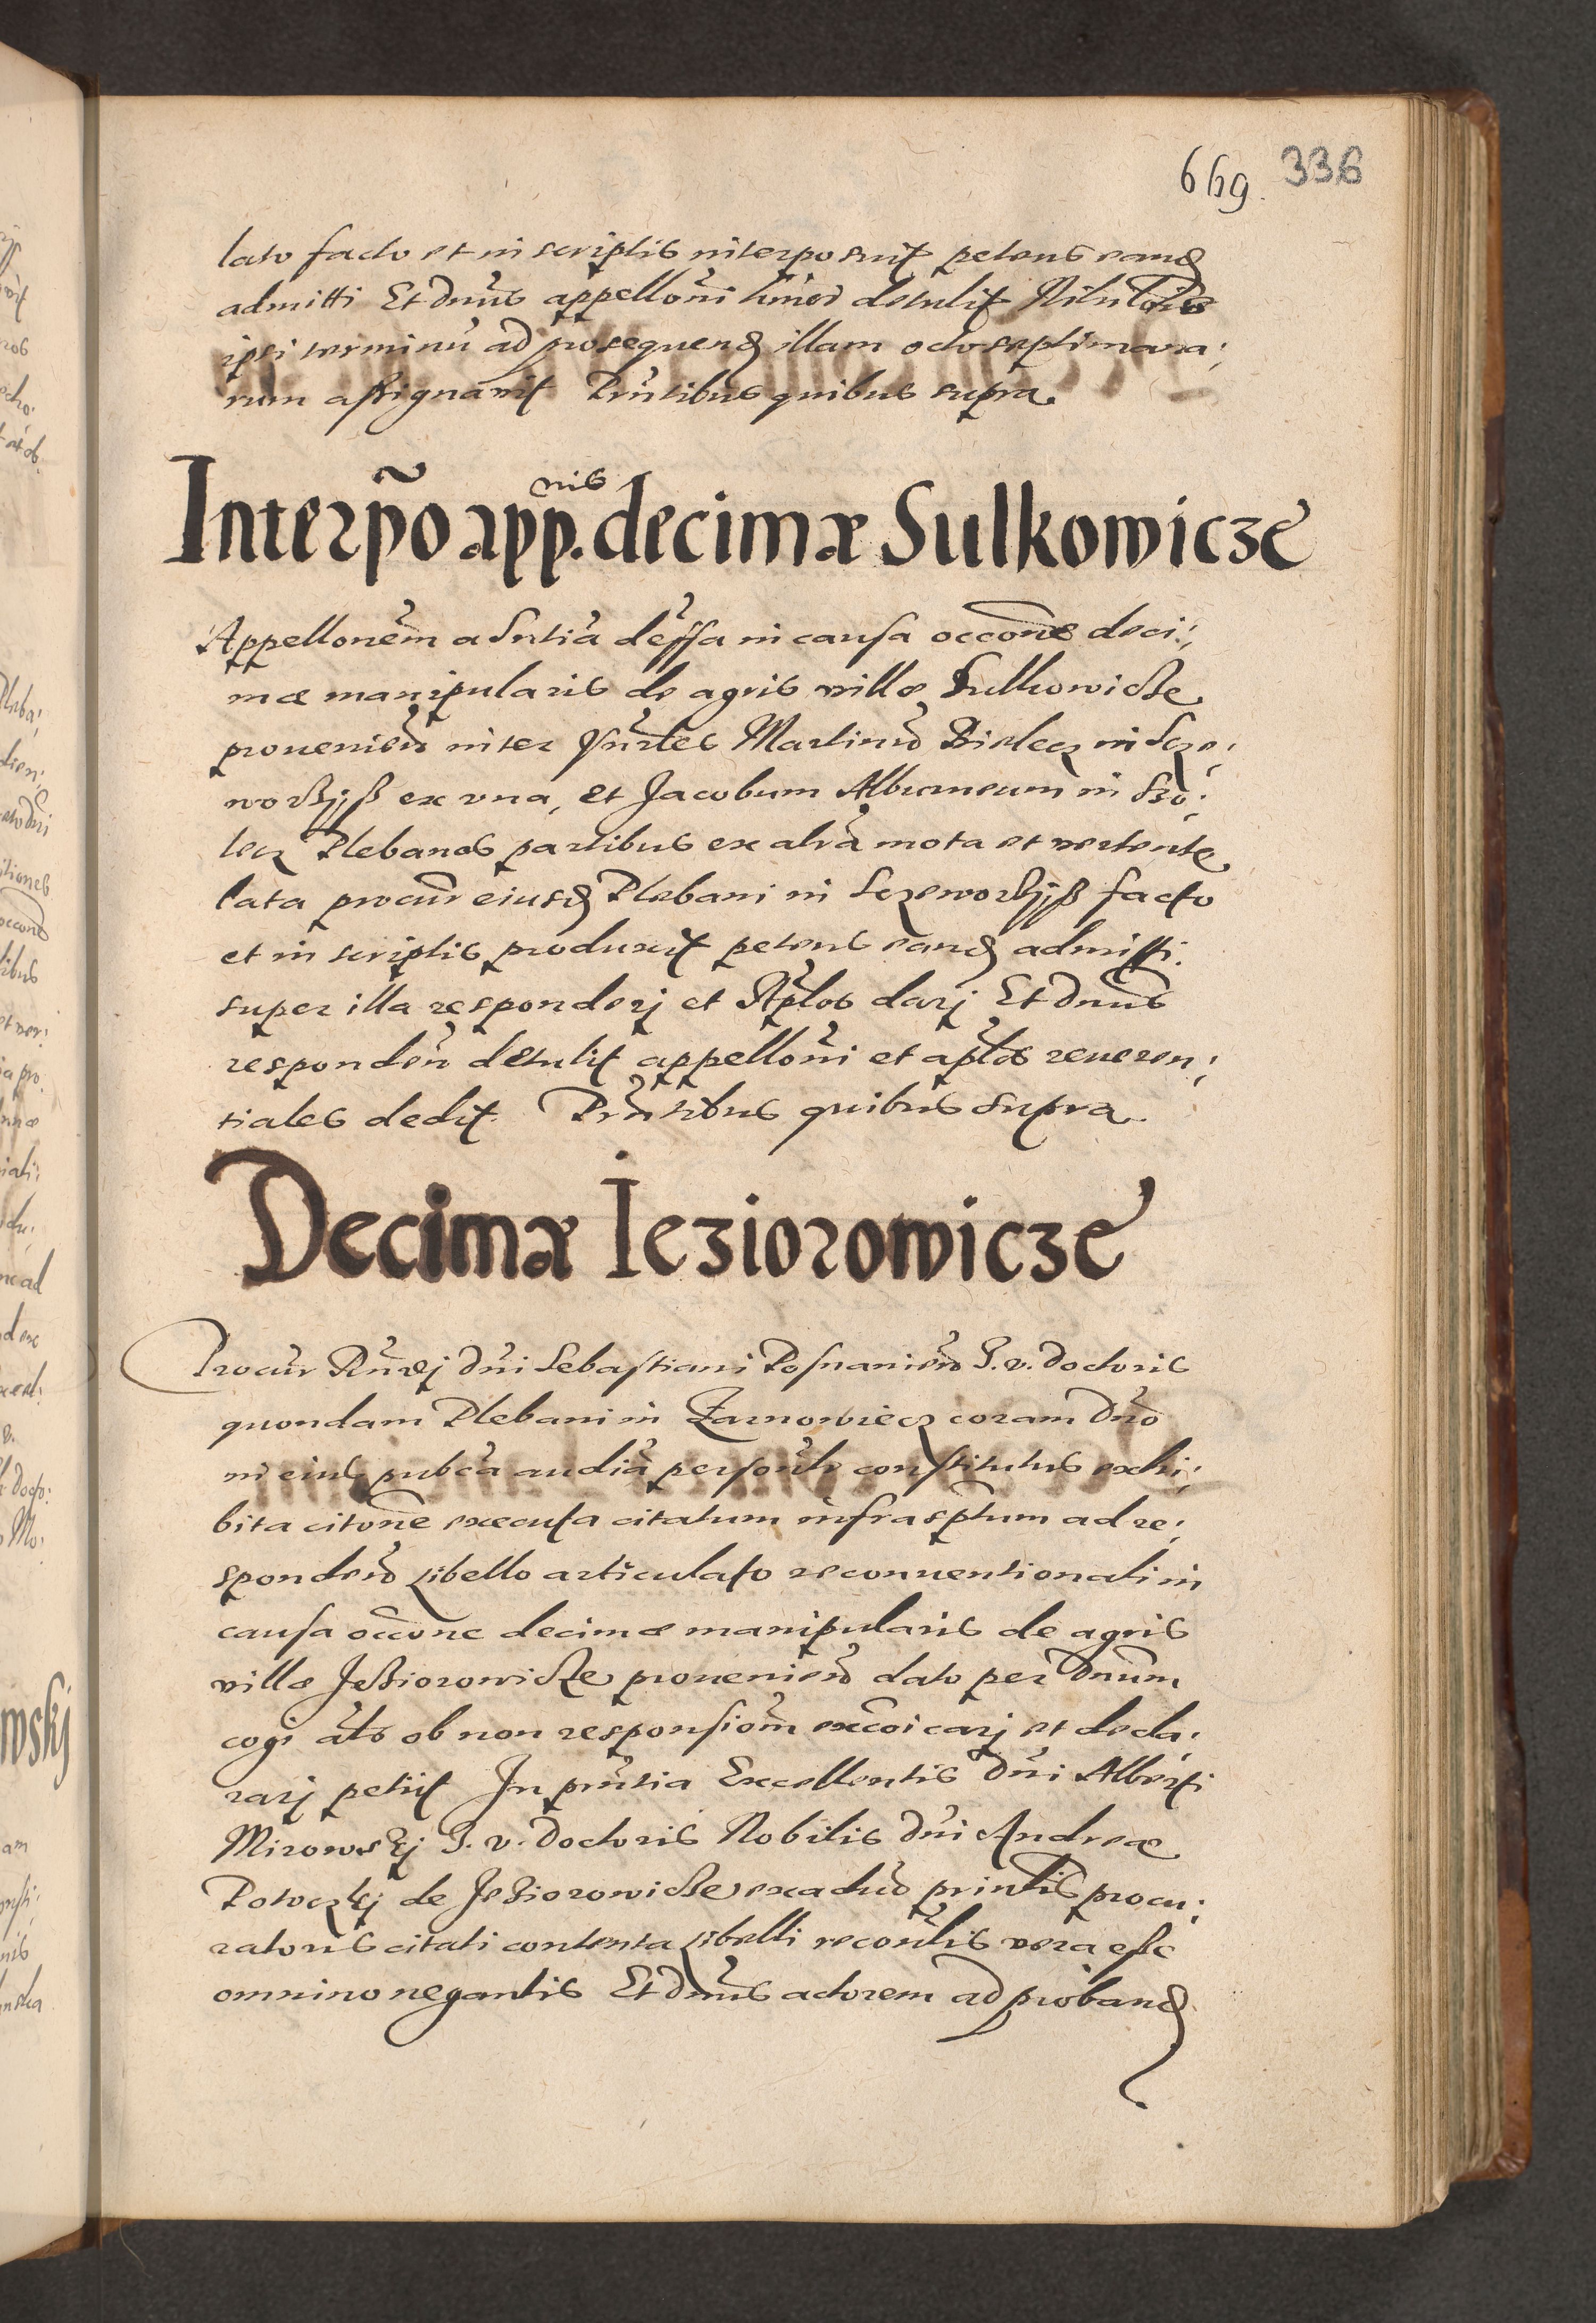 669. 336
lato facto et in scriptis interposuit petens eand
admitti Et Dnus appelloni huic detulit
ipsi terminu ad prosequend illam octo septimana:
rum assignavit Pntibus quibus supra.
Interpo app.nis decimæ Sulkowicze
Appellonem a Sntia deffa in causa occone deci:
mæ manipularis de agris villæ Sulkowicze
provenien inter Martinu Bielecz in Scze:
worzyß ex una, et Jacobum Alburneum in Szo:
lecz Plebanos partibus ex altra mota et vertente
lata procur eiusd Plebani in Sczeworzyß facto
et in scriptis produxit petens eand admitti.
super illa responderj et Aplos darj Et Dnus
responden detulit appelloni et aplos reveren:
tiales dedit. Pntibus quibus supra.
Decimæ Iezioro­wicze
Procur Rndj Dni Sebastiani Posnanien J. v. Doctoris
quondam Plebani in Zarnowiecz coram Dno
in eius pubca audia personlr constitutus exhi:
bita citone executa citatum infrasptum ad re:
sponden libello articulato reconventionali in
causa occone decimæ manipularis de agris
villæ Jeziorowicze provenien dato per Dnum
cogi als ob non responsiom excoicarj et decla:
rarj petiit In pntia Excellentis Dni Alberti
Mirowskj J. v. Doctoris Nobilis Dni Andreæ
Potoczkj de Jeziorowicze ex adverso principlis procu:
ratoris citati contenta libelli reconlis vera esse
omnino negantis Et Dnus actorem ad proband